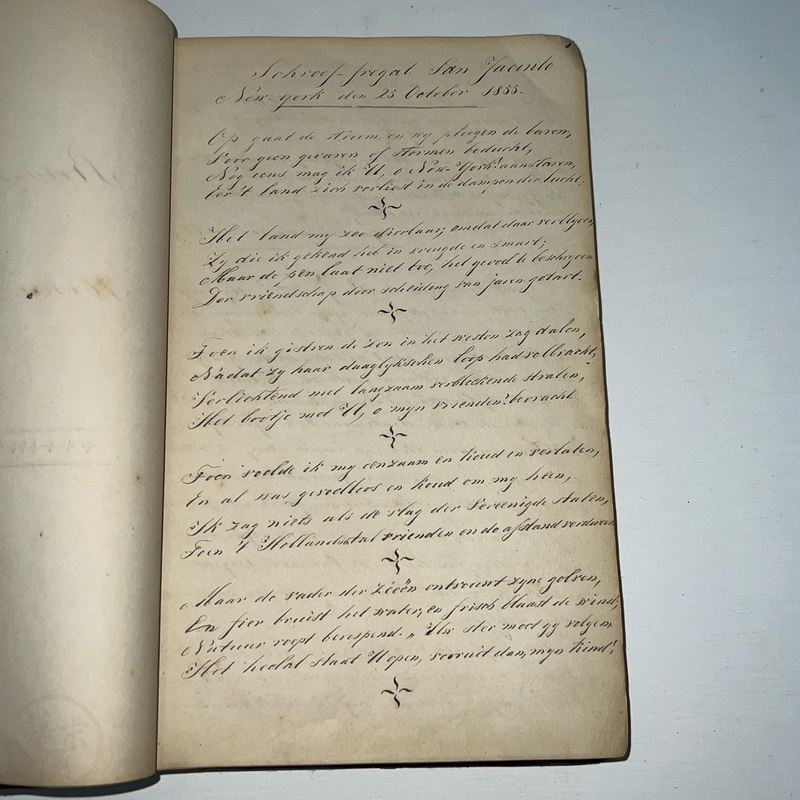 Schroef-fregat San Jacinto
New-York den 25 October 1855.
Op gaat de stoom en wy ploegen de baren,
Voor geen gevaren of stormen beducht,
Nog eens mag ik U, o New-York! aanstaren,
Eer 't land zich verliest in de dampen der lucht;
Het land my zoo dierbaar; omdat daar verblyven
Zy die ik gekend heb in vreugde en smart;
Maar de pen laat niet toe, het gevoel te beschryven
Der vriendschap door scheiding van jaren getart.
Toen ik gistren de zon in het westen zag dalen,
Nadat zy haar daaglykschen loop had volbracht,
Verlichtend met langzaam verbleekende stralen,
Het bootje met U, o myn vrienden! bevracht.
Toen voelde ik my eenzaam en koud en verlaten,
En al was gevoelloos en koud om my heen,
Ik zag niets als de vlag der Vereenigde staten,
Toen 't Hollandsch tal vrienden en de afstand verdween
Maar de vader der Zéeën ontrouwt zyne golven,
En fier bruist het water, en frisch blaast de wind,
Natuur roept berispend. „ Uw ster moet gy volgen,
Het heelal staat U open, vooruit dan, myn kind!